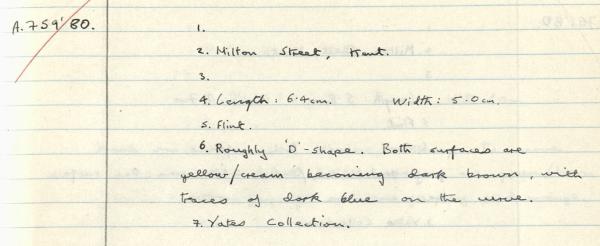 A.759'80.
1.
2. Milton Street, Kent.
3.
4. Length: 6.4cm. Width: 5.0cm.
5. Flint.
6. Roughly 'D'-shape. Both surfaces are
yellow/cream becoming dark brown, with
traces of dark blue on the
7. Yates Collection.